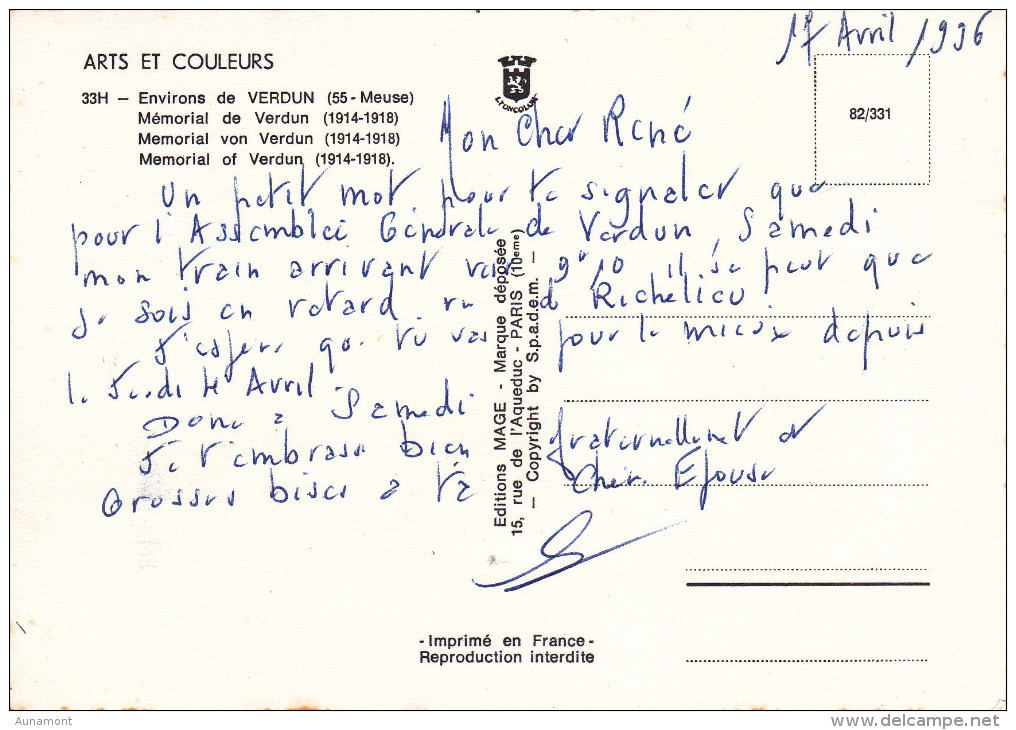 17 Avril 1996
ARTS ET COULEURS
LYONCOLOR
33H – Environs de VERDUN (55 - Meuse)
Mémorial de Verdun (1914-1918)
Memorial von Verdun (1914-1918)
Memorial of Verdun (1914-1918).
82/331
Mon Cher René
Un petit mot, pour te signaler que
pour l'Assemblée Générale de Verdun, Samedi
mon train arrivant vers 9h10 il se peut que
je sois en retard, rue de Richelieu.
J'espère que tu vas pour le mieux depuis
le Jeudi 4 Avril.
Donc à Samedi
Je t'embrasse bien fraternellement et
Grosses bises à ta Chère Epouse
Editions MAGE - Marque déposée
15, rue de l'Aqueduc - PARIS (10eme)
— Copyright by S.p.a.d.e.m. —
- Imprimé en France -
Reproduction interdite
Aunamont
delcampe.net